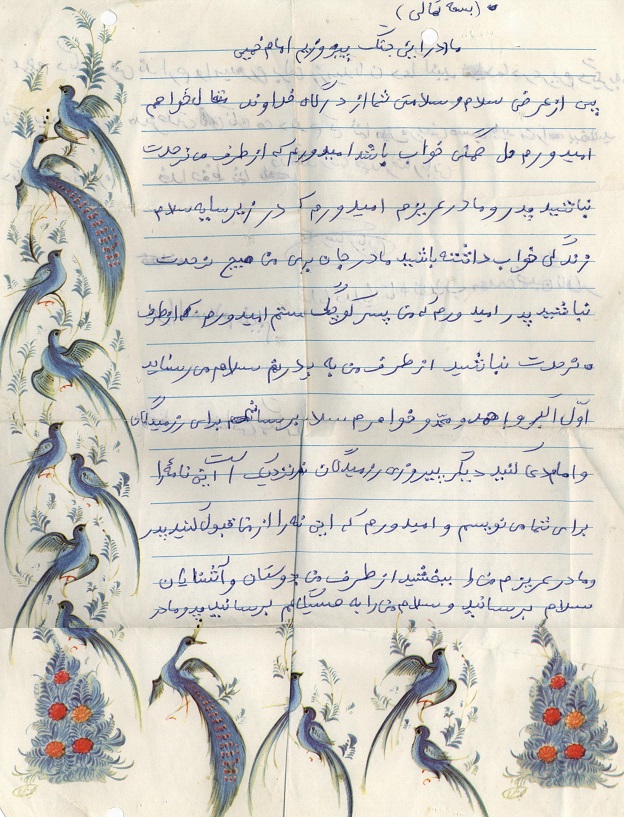 (بسمه تعالی)
ما در این جنگ پیروزیم امام خمینی
پس از عرض سلام و سلامتی شما از درگاه خداوند متعال خواهم
امیدورم حال همگی خواب باشد امیدورم که از طرف من نرحت
نباشید پدر و مادر عزیزم امیدورم که در زیر سایه سلام
زندگی خواب داشته باشید مادر جان برای من هیچ نرحت
نباشید پدر امیدورم که من پسر کوچکی هستم امیدورم که از طرف
نرحت نباشید از طرف من به پدرم سلام می رسانید
اول اکبر و احمد و خواهرم سلام برسانید برای رزمندگان
و امام دعا کنید دیگر پیروزی رزمیدگان نزدیک است این نامه را
برای شما می نویسم و امیدورم که این نامه را از ما قبول کنید پدر
و مادر عزیزم من را ببخشید از طرف من دوستان و آشنایان
سلام برسانید و سلام من را به همسگانم برسانید پدر و مادر